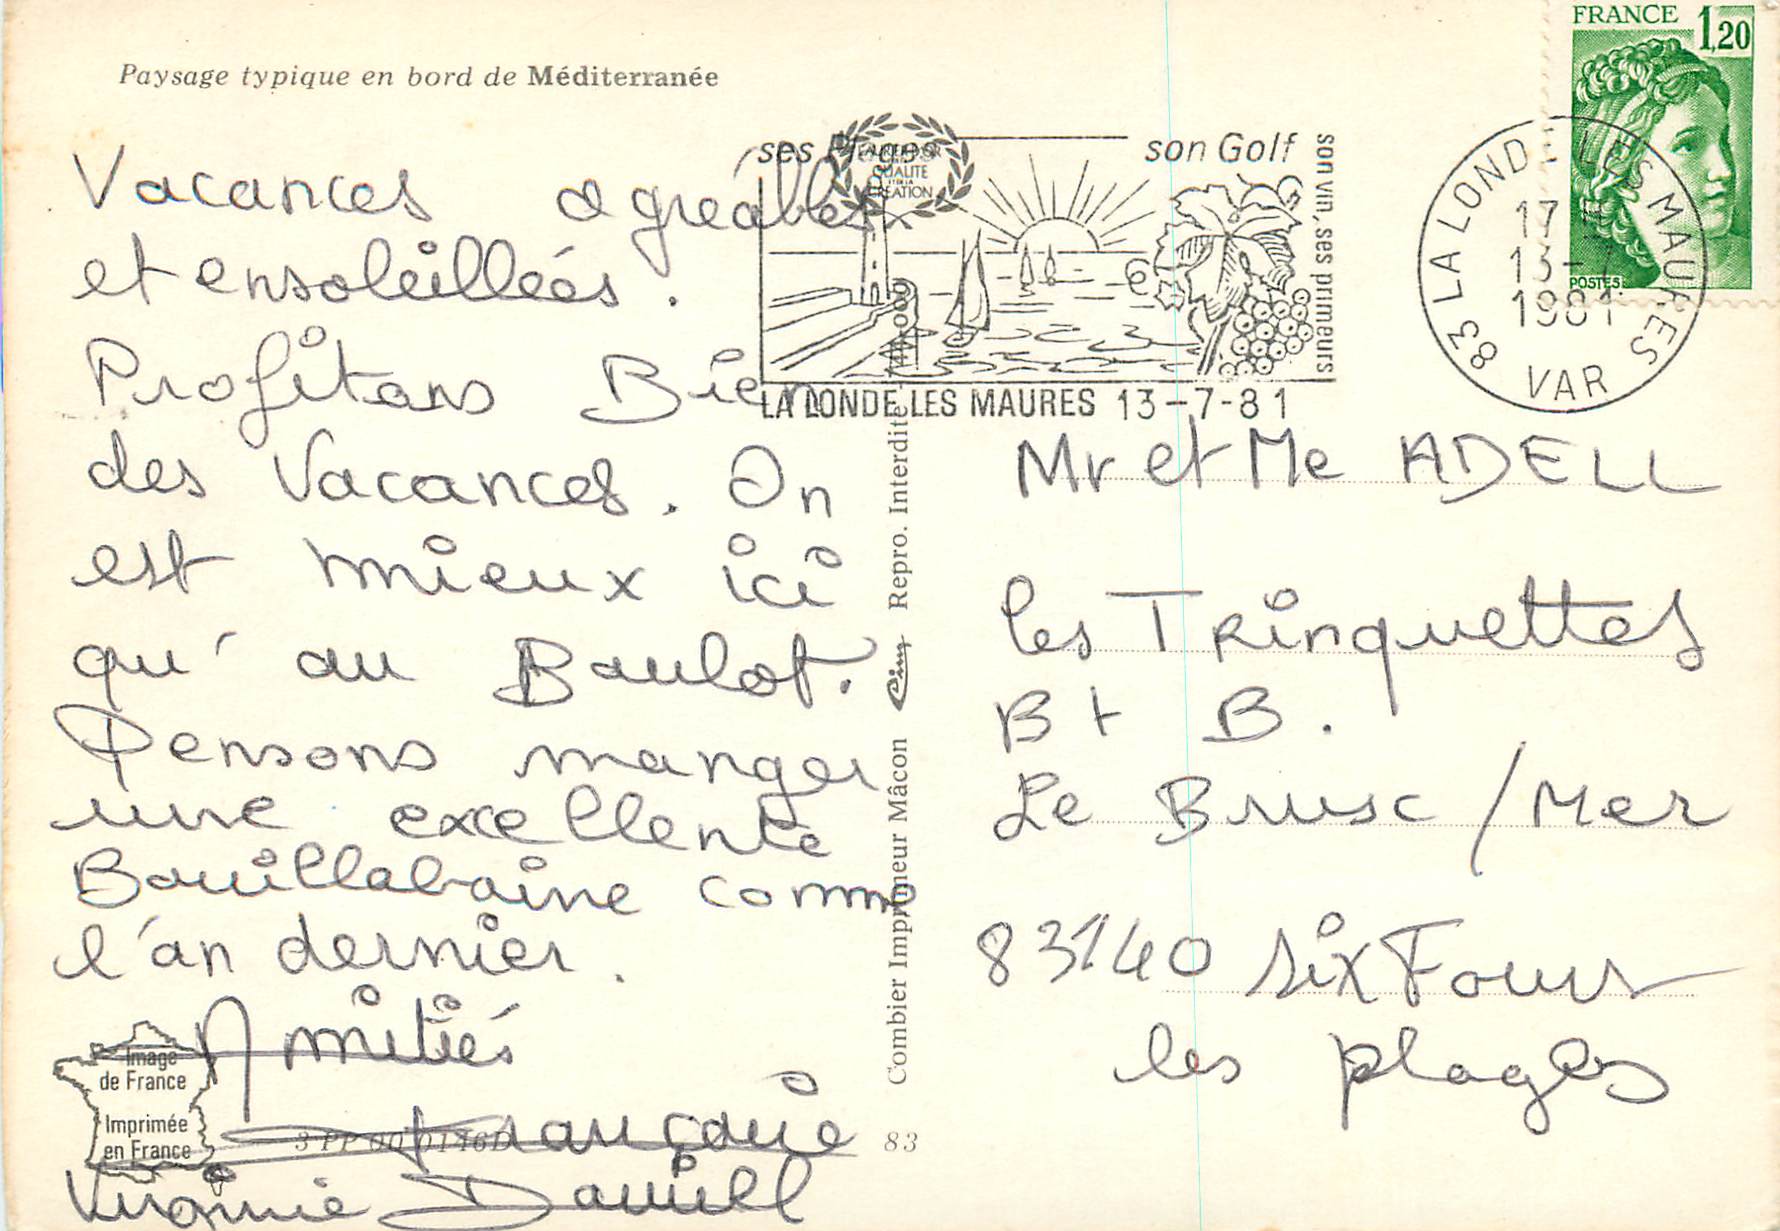 Paysage typique en bord de Méditerranée
FRANCE 1,20
POSTES
son Golf
son vin, ses primeurs
LAURIER D'OR
QUALITE
CREATION
LA LONDE LES MAURES 13-7-81
83 LA LONDE LES MAURES
17
13-7
1981
VAR
Vacances agréables
et ensoleillées.
Profitons Bien
des Vacances. On
est mieux ici
qu'au Boulot.
Pensons manger
une excellente
Bouillabaine comme
l'an dernier.
Amitiés
Françoise
Virginie Daniel
Image
de France
Imprimée
en France
83
Combier Imprimeur Mâcon Cim Repro. Interdite
Mr et Me ADELL
les Trinquettes
Bt B.
Le Brusc / Mer
83140 Six Fours
les plages